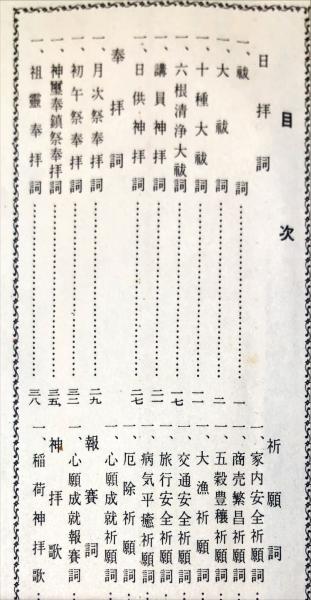 目次
日拝詞
一、祓詞……一
一、大祓詞……二
一、十種大祓詞……一一
一、六根清浄大祓詞……一七
一、講員神拝詞……二一
一、日供神拝詞……二七
奉拝詞
一、月次祭奉拝詞……二九
一、初午祭奉拝詞……三二
一、神璽奉鎮祭奉拝詞……三五
一、祖霊奉拝詞……三八
祈願詞
一、家内安全祈願詞…
一、商売繁昌祈願詞…
一、五穀豊穣祈願詞…
一、大漁祈願詞…
一、交通安全祈願詞…
一、旅行安全祈願詞…
一、病気平癒祈願詞…
一、厄除祈願詞…
一、心願成就祈願詞…
報賽詞
一、心願成就報賽詞…
神拝歌
一、稲荷神拝歌…